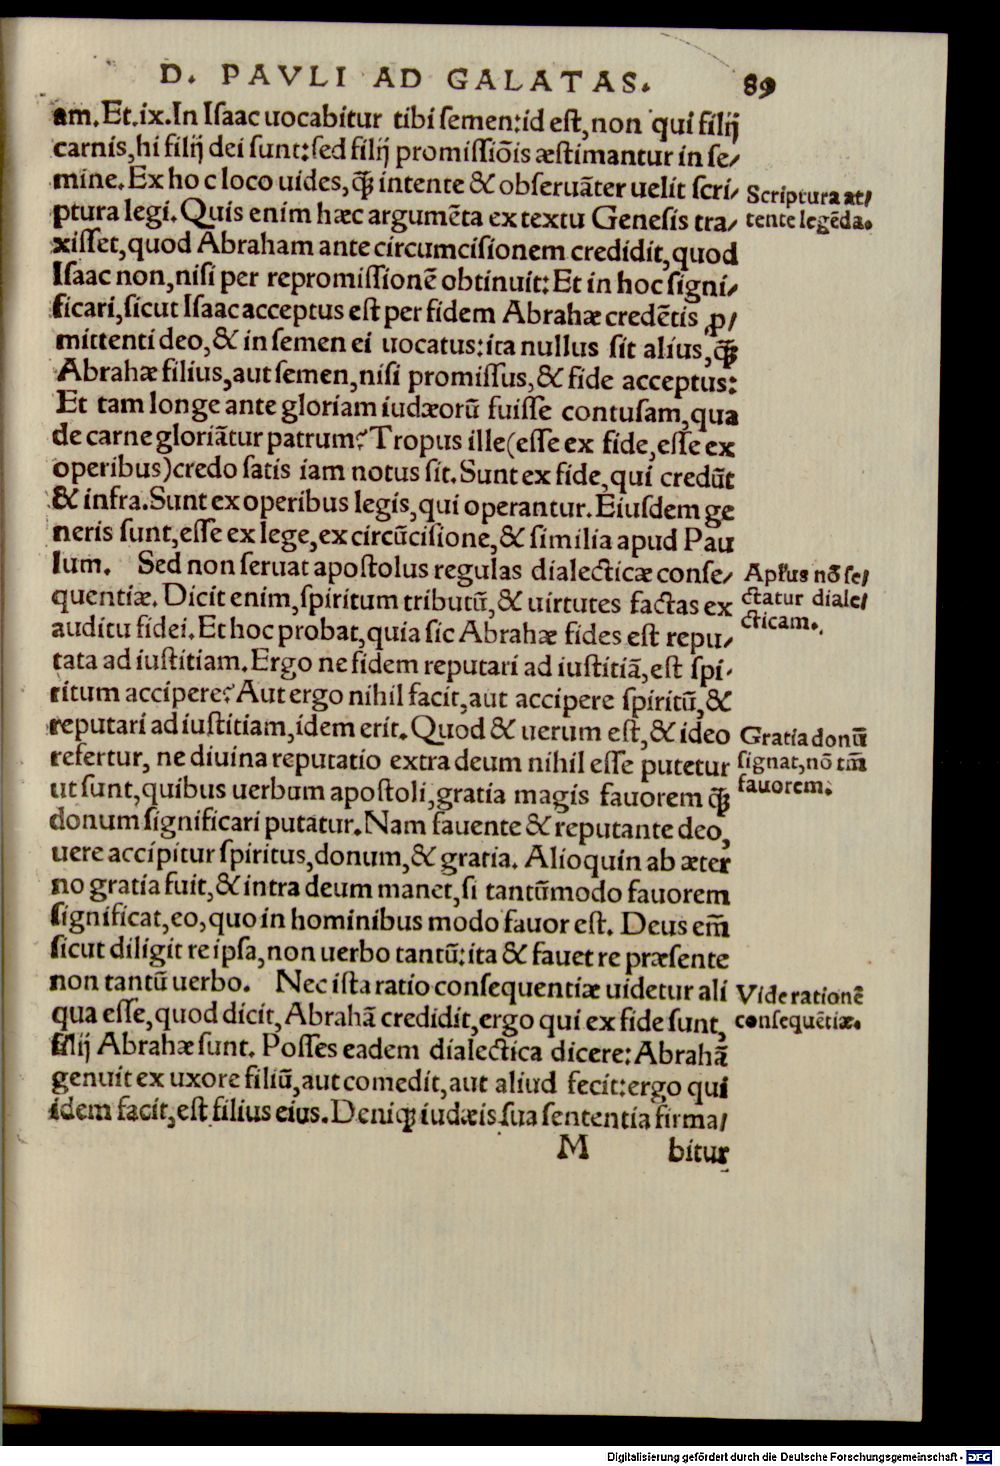 D. PAVLI AD GALATAS. 89
am. Et. ix. In Iſaac uocabitur tibi ſemen: id eſt, non qui filij
carnis, hi filij dei ſunt: ſed filij promiſſiōis æſtimantur in ſe/
mine. Ex hoc loco uides, q̃ꝫ intente & obſeruāter uelit ſcri/
Scriptura at/
ptura legi. Quis enim hæc argumēta ex textu Geneſis tra/
tente legēda.
xiſſet, quod Abraham ante circumciſionem credidit, quod
Iſaac non, niſi per repromiſſionē obtinuit: Et in hoc ſigni/
ficari, ſicut Iſaac acceptus eſt per fidem Abrahæ credētis ꝓ/
mittenti deo, & in ſemen ei uocatus: ita nullus ſit alius, q̃ꝫ
Abrahæ filius, aut ſemen, niſi promiſſus, & fide acceptus:
Et tam longe ante gloriam iudæorū fuiſſe contuſam, qua
de carne gloriātur patrum? Tropus ille (eſſe ex fide, eſſe ex
operibus) credo ſatis iam notus ſit. Sunt ex fide, qui credūt
& infra. Sunt ex operibus legis, qui operantur. Eiuſdem ge
neris ſunt, eſſe ex lege, ex circūciſione, & ſimilia apud Pau
lum. Sed non ſeruat apoſtolus regulas dialecticæ conſe/
Apľus nō ſe/
quentiæ. Dicit enim, ſpiritum tributū, & uirtutes factas ex
ctatur diale/
auditu fidei. Et hoc probat, quia ſic Abrahæ fides eſt repu/
cticam.
tata ad iuſtitiam. Ergo ne fidem reputari ad iuſtitiā, eſt ſpi/
ritum accipere? Aut ergo nihil facit, aut accipere ſpiritū, &
reputari ad iuſtitiam, idem erit. Quod & uerum eſt, & ideo
Gratia donū
refertur, ne diuina reputatio extra deum nihil eſſe putetur
ſignat, nō tm̄
ut ſunt, quibus uerbum apoſtoli, gratia magis fauorem q̃ꝫ
fauorem.
donum ſignificari putatur. Nam fauente & reputante deo,
uere accipitur ſpiritus, donum, & gratia. Alioquin ab æter
no gratia fuit, & intra deum manet, ſi tantūmodo fauorem
ſignificat, eo, quo in hominibus modo fauor eſt. Deus em̄
ſicut diligit re ipſa, non uerbo tantū: ita & fauet re præſente
non tantū uerbo. Nec iſta ratio conſequentiæ uidetur ali
Vide rationē
qua eſſe, quod dicit, Abrahā credidit, ergo qui ex fide ſunt,
conſequētiæ.
filij Abrahæ ſunt. Poſſes eadem dialectica dicere: Abrahā
genuit ex uxore filiū, aut comedit, aut aliud fecit: ergo qui
idem facit, eſt filius eius. Deniqꝫ iudæis ſua ſententia firma/
M bitur
Digitalisierung gefördert durch die Deutsche Forschungsgemeinschaft - DFG